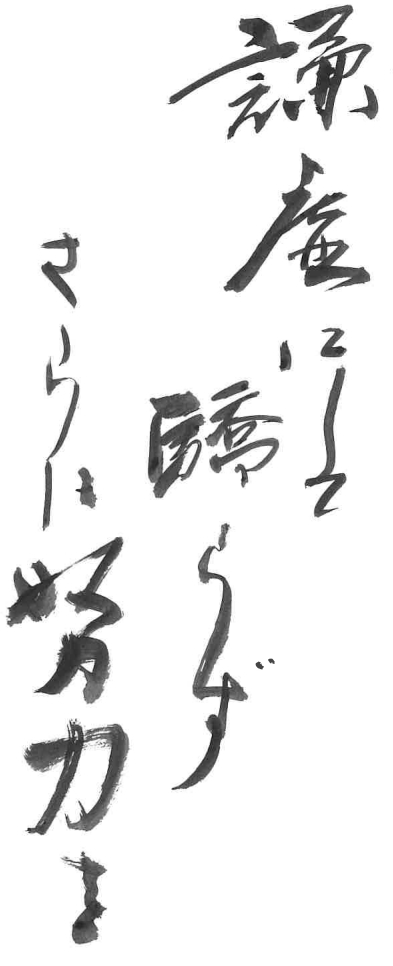 謙虚にして
驕らず
さらに努力を